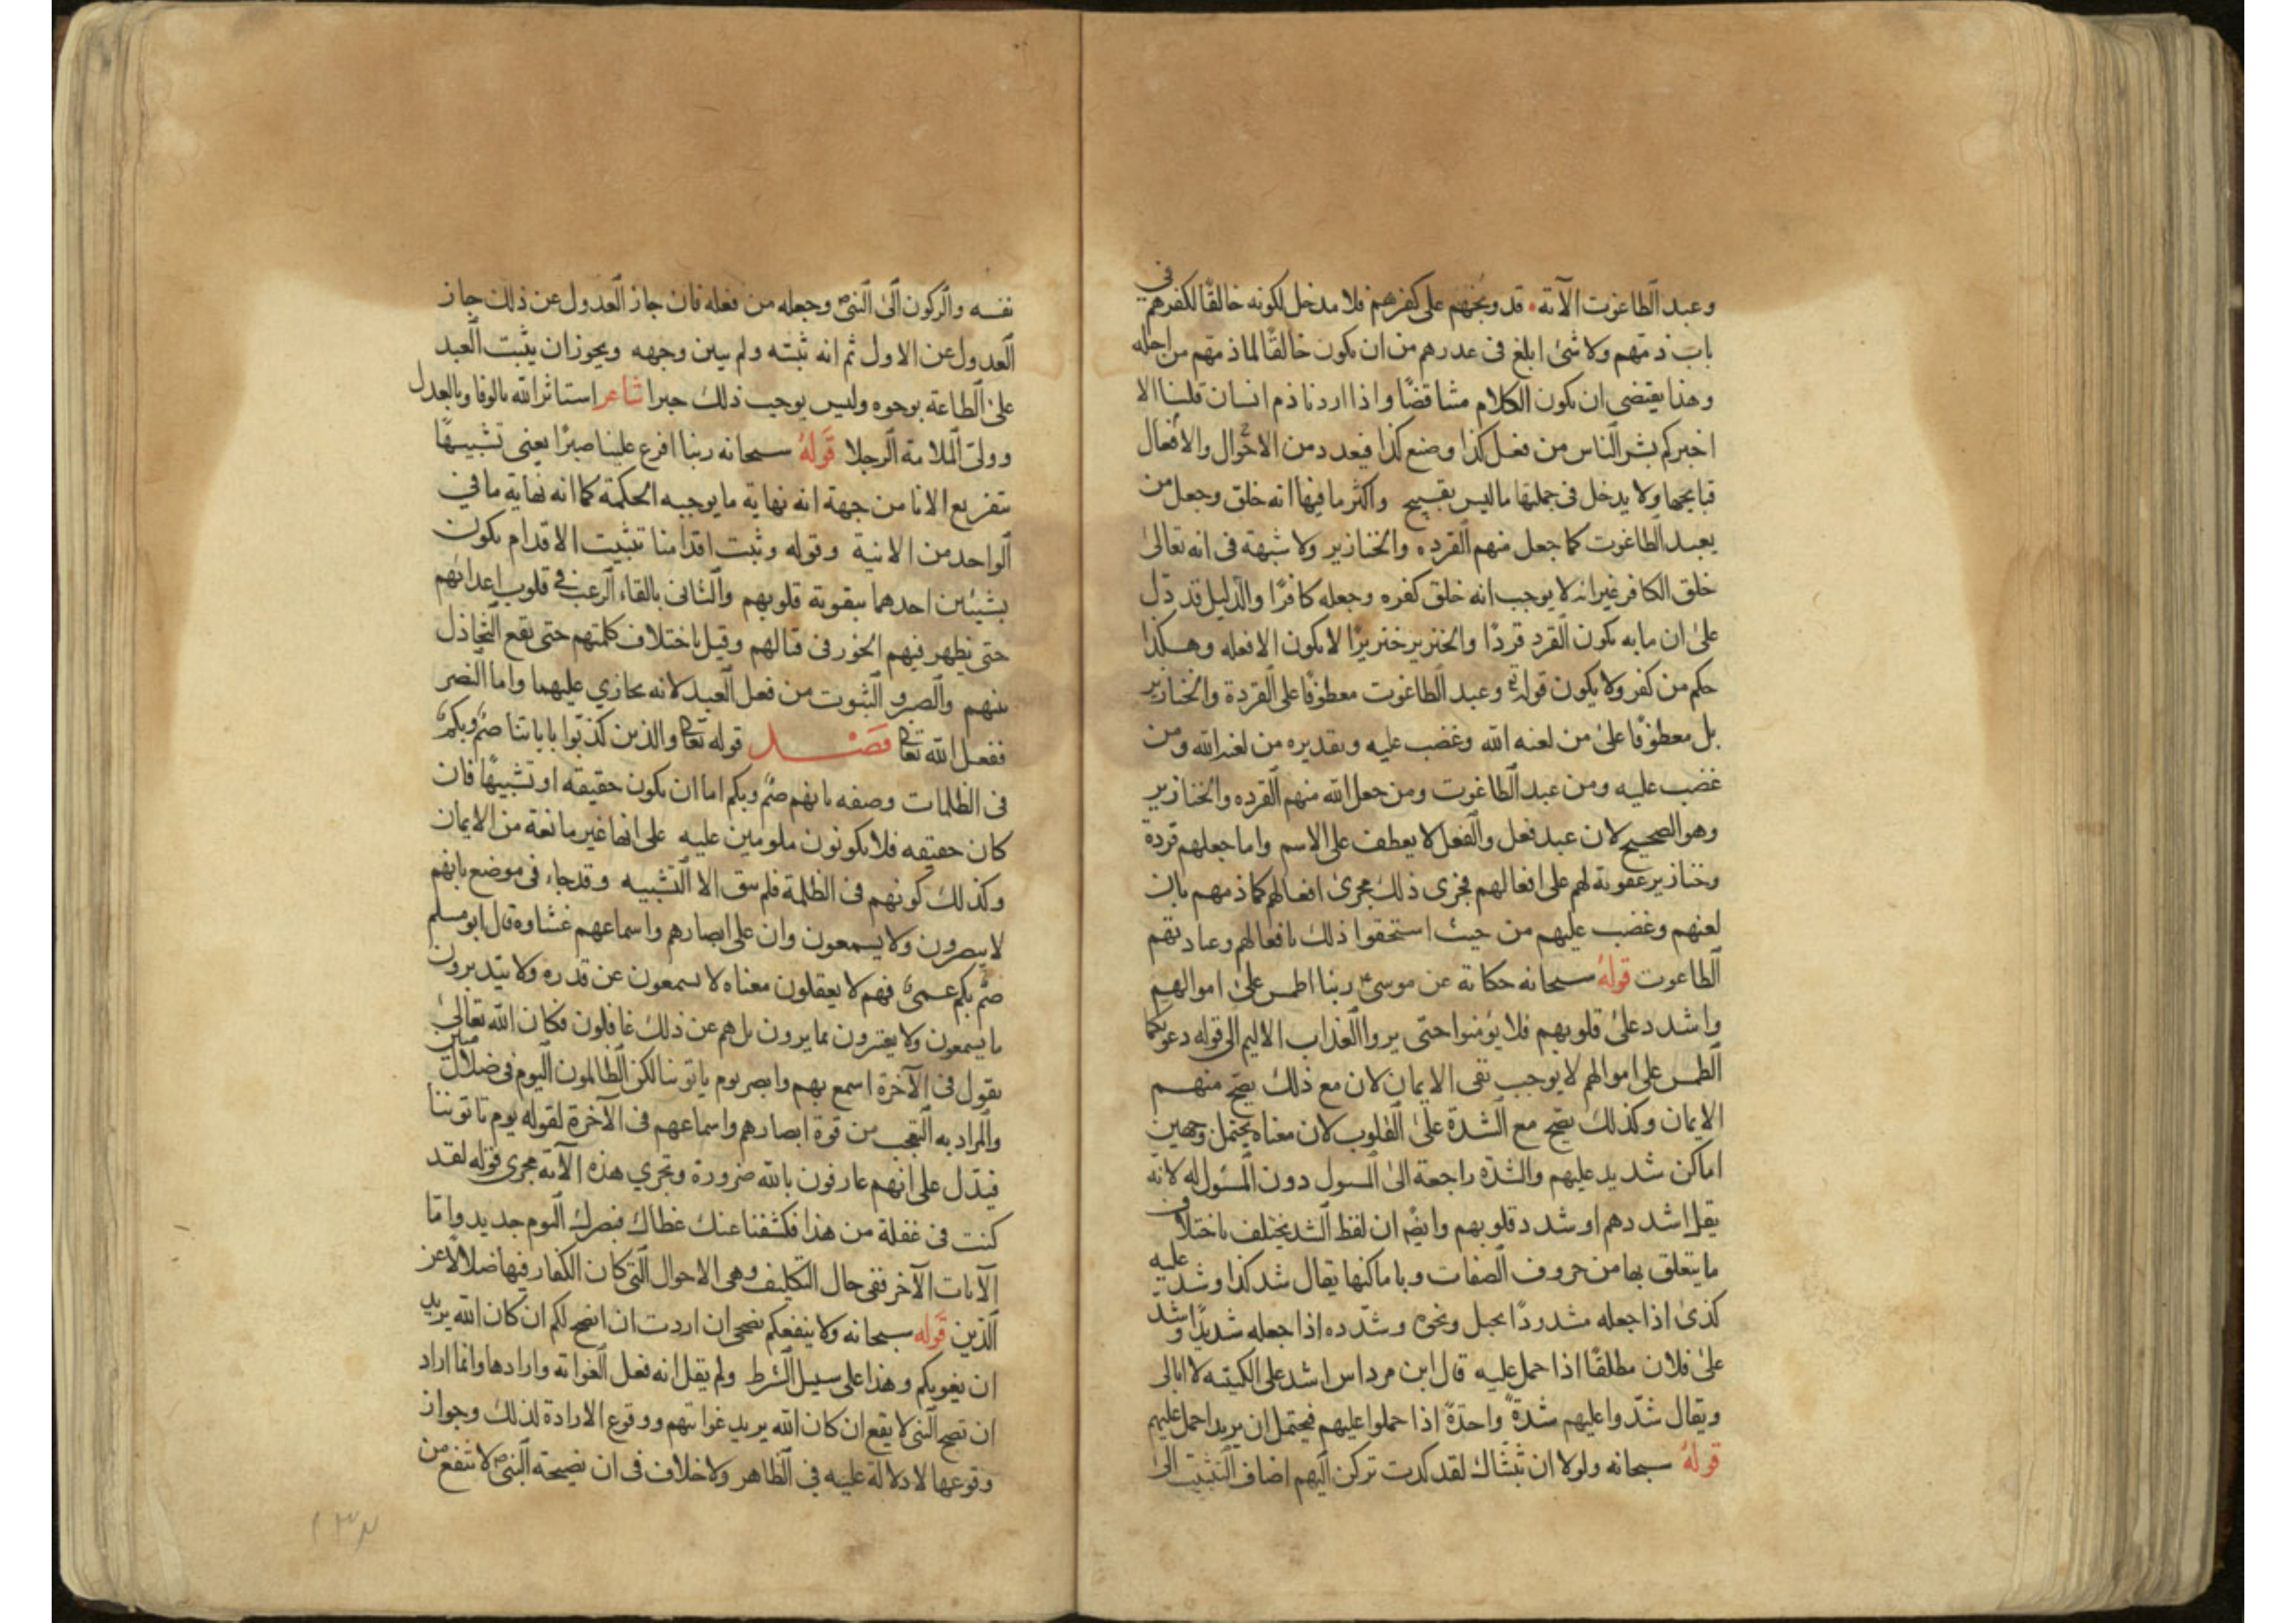 وعبد الطاغوت الآية قد وبخهم على كفرهم فلا مدخل لكونه خالقا لكفرهم في
باب ذمهم ولا شئ ابلغ فى عذرهم من ان يكون خالقا لما ذمهم من اجله
وهذا يقتضى ان يكون الكلام متناقضا واذا اردنا ذم انسان قلنا الا
اخبركم بشر الناس من فعل كذا وصنع كذا فيعدد من الاحوال والافعال
قبايحها ولا يدخل فى جملتها ما ليس بقبيح واكثر ما فيها انه خلق وجعل من
يعبد الطاغوت كما جعل منهم القرده والخنازير ولا شبهة فى انه تعالى
خلق الكافر غير انه لا يوجب انه خلق كفره وجعله كافرا والدليل قد دل
على ان ما به يكون القرد قردا والخنزير خنزيرا لا يكون الا فعله وهكذا
حكم من كفر ولا يكون قوله وعبد الطاغوت معطوفا على القردة والخنازير
بل معطوفا على من لعنه الله وغضب عليه وتقديره من لعنه الله ومن
غضب عليه ومن عبد الطاغوت ومن جعل الله منهم القرده والخنازير
وهو الصحيح لان عبد فعل والفعل لا يعطف على الاسم واما جعلهم قردة
وخنازير عقوبة لهم على افعالهم فجرى ذلك مجرى افعالهم كما ذمهم بان
لعنهم وغضب عليهم من حيث استحقوا ذلك بافعالهم وعبادتهم
الطاغوت قوله سبحانه حكاية عن موسى ربنا اطمس على اموالهم
واشدد على قلوبهم فلا يؤمنوا حتى يروا العذاب الاليم الى قوله دعوتكما
الطمس على اموالهم لا يوجب نفى الايمان لان مع ذلك يصح منهم
الايمان وكذلك يصح مع الشدة على القلوب لان معناه يحتمل وجهين
اماكن شديد عليهم والشدة راجعة الى السول دون المسئول له لانه
يقل اشددهم او شدد قلوبهم وايضا ان لفظ الشد يختلف باختلاف
ما يتعلق بها من حروف الصفات وباماكنها يقال شد كذا وشد عليه
كذى اذا جعله مشدودا بحبل ونحوه وشدده اذا جعله شديدا وشد
على فلان مطلقا اذا حمل عليه قال ابن مرداس اشد على الكتيبه لا ابالى
ويقال شدوا عليهم شدة واحدة اذا حملوا عليهم فيحتمل ان يريد احمل عليهم
قوله سبحانه ولولا ان ثبتناك لقد كدت تركن اليهم اضاف التثبيت الى
نفسه والركون الى النبى وجعله من فعله فان جاز العدول عن ذلك جاز
العدول عن الاول ثم انه ثبته ولم يبين وجهه ويجوز ان يثبت العبد
على الطاعة بوجوه وليس يوجب ذلك جبرا شاعر استاثر الله بالوفا وبالعدل
وولى الملامة الرجلا قوله سبحانه ربنا افرغ علينا صبرا يعنى تشبيها
بتفريع الانا من جهة انه نهاية ما يوجبه الحكمة كما انه نهاية ما في
الواحد من الانية وقوله وثبت اقدامنا تثبيت الاقدام يكون
بشيئين احدهما بتقوية قلوبهم والثانى بالقاء الرعب في قلوب اعدائهم
حتى يظهر فيهم الخور فى قتالهم وقيل باختلاف كلمتهم حتى يقع التخاذل
منهم والصبر والثبوت من فعل العبد لانه يجازي عليهما واما النصر
ففعل الله تعالى فصل قوله تعالى والذين كذبوا باياتنا صم وبكم
فى الظلمات وصفه بانهم صم وبكم اما ان يكون حقيقه او تشبيها فان
كان حقيقه فلا يكونون ملومين عليه على انها غير مانعة من الايمان
وكذلك كونهم فى الظلمة فلم يبق الا التشبيه وقد جاء فى موضع بانهم
لا يبصرون ولا يسمعون وان على ابصارهم واسماعهم غشاوه قال ابو مسلم
صم بكم عمى فهم لا يعقلون معناه لا يسمعون عن قدره ولا يتدبرون
ما يسمعون ولا يعتبرون بما يرون بل هم عن ذلك غافلون فكان الله تعالى
يقول فى الآخرة اسمع بهم وابصر يوم ياتوننا لكن الظالمون اليوم فى ضلال مبين
والمراد به التعجب من قوة ابصارهم واسماعهم فى الآخرة لقوله يوم تاتوننا
فيدل على انهم عارفون بالله ضرورة وتجري هذه الآية مجرى قوله لقد
كنت فى غفلة من هذا فكشفنا عنك غطاك فبصرك اليوم جديد واما
الآيات الآخر ففى حال التكليف وهى الاحوال التى كان الكفار فيها ضلالا عن
الدين قوله سبحانه ولا ينفعكم نصحى ان اردت ان انصح لكم ان كان الله يريد
ان يغويكم وهذا على سبيل الشرط ولم يقل انه فعل الغوايه وارادها وانما اراد
ان نصح النبى لا يقع ان كان الله يريد غوايتهم ووقوع الارادة لذلك وجواز
وقوعها لا دلالة عليه في الظاهر ولا خلاف فى ان نصيحة النبى لا تنفع من
١٣٢